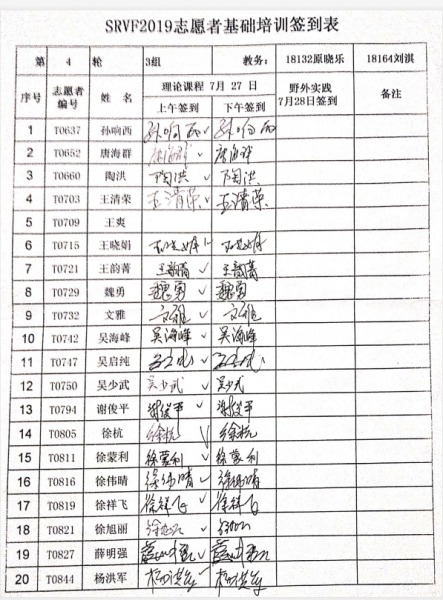 SRVF2019志愿者基础培训签到表
第 4 轮 3组 教务: 18132原晓乐 18164刘淇
序号 志愿者编号 姓名 理论课程 7月 27日 野外实践7月28日签到 备注
上午签到 下午签到
1 T0637 孙响西 孙响西 ✓ 孙响西
2 T0652 唐海群 唐海群 ✓ 唐海群
3 T0660 陶洪 陶洪 ✓ 陶洪
4 T0703 王清荣 王清荣 王清荣
5 T0709 王爽
6 T0715 王晓娟
7 T0721 王韵菁 王韵菁 ✓ 王韵菁
8 T0729 魏勇 魏勇 ✓ 魏勇
9 T0732 文雅 文雅 ✓ 文雅
10 T0742 吴海峰 吴海峰 ✓ 吴海峰
11 T0747 吴启纯 ✓
12 T0750 吴少武 吴少武 ✓ 吴少武
13 T0794 谢俊平 谢俊平 ✓ 谢俊平
14 T0805 徐杭 徐杭 ✓ 徐杭
15 T0811 徐蒙利 徐蒙利 ✓ 徐蒙利
16 T0816 徐伟晴 徐伟晴 ✓ 徐伟晴
17 T0819 徐祥飞 徐祥飞 ✓ 徐祥飞
18 T0821 徐旭丽 ✓
19 T0827 薛明强 ✓
20 T0844 杨洪军 杨洪军 ✓ 杨洪军